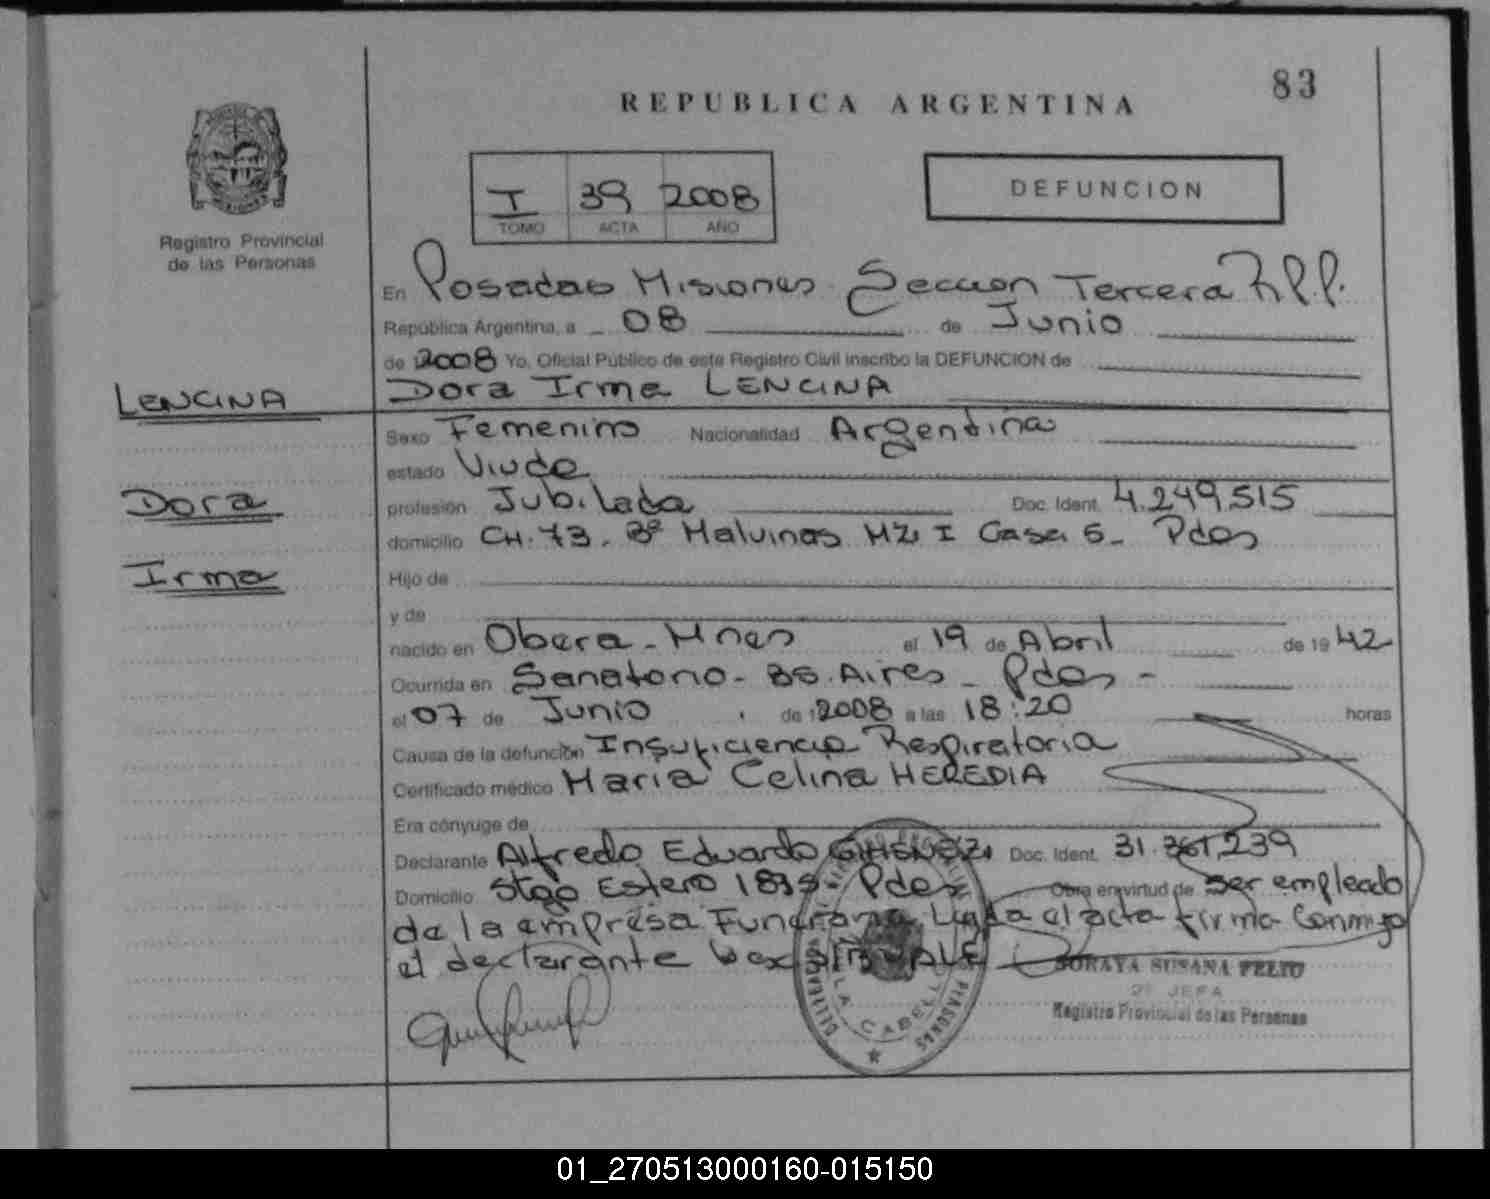 83
REPUBLICA ARGENTINA
I 39 2008
TOMO ACTA AÑO
DEFUNCION
Registro Provincial
de las Personas
En Posadas Misiones Seccion Tercera R.P.P.
República Argentina, a 08 de Junio
de 2008 Yo, Oficial Público de este Registro Civil inscribo la DEFUNCION de
LENCINA
Dora Irma LENCINA
Sexo Femenino Nacionalidad Argentina
estado Viuda
Dora
profesión Jubilada Doc. Ident. 4.249.515
domicilio CH. 73. Bº Malvinas Mz I Casa 5- Pdas
Irma
Hijo de
y de
nacido en Obera - Mnes el 19 de Abril de 1942
Ocurrida en Sanatorio - BS. Aires - Pdas -
el 07 de Junio de 2008 a las 18:20 horas
Causa de la defunción Insuficiencia Respiratoria
Certificado médico Maria Celina HEREDIA
Era cónyuge de
Declarante Alfredo Eduardo Doc. Ident. 31.361.239
Domicilio Stgo Estero Pdas Obra en virtud de ser empleado
de la empresa Funeraria Leida el acta firma Conmigo
el declarante
SORAYA SUSANA FELTO
2º JEFA
Registro Provincial de las Personas
DELEGACION PERSONAS
VILLA CABELLO
01_270513000160-015150